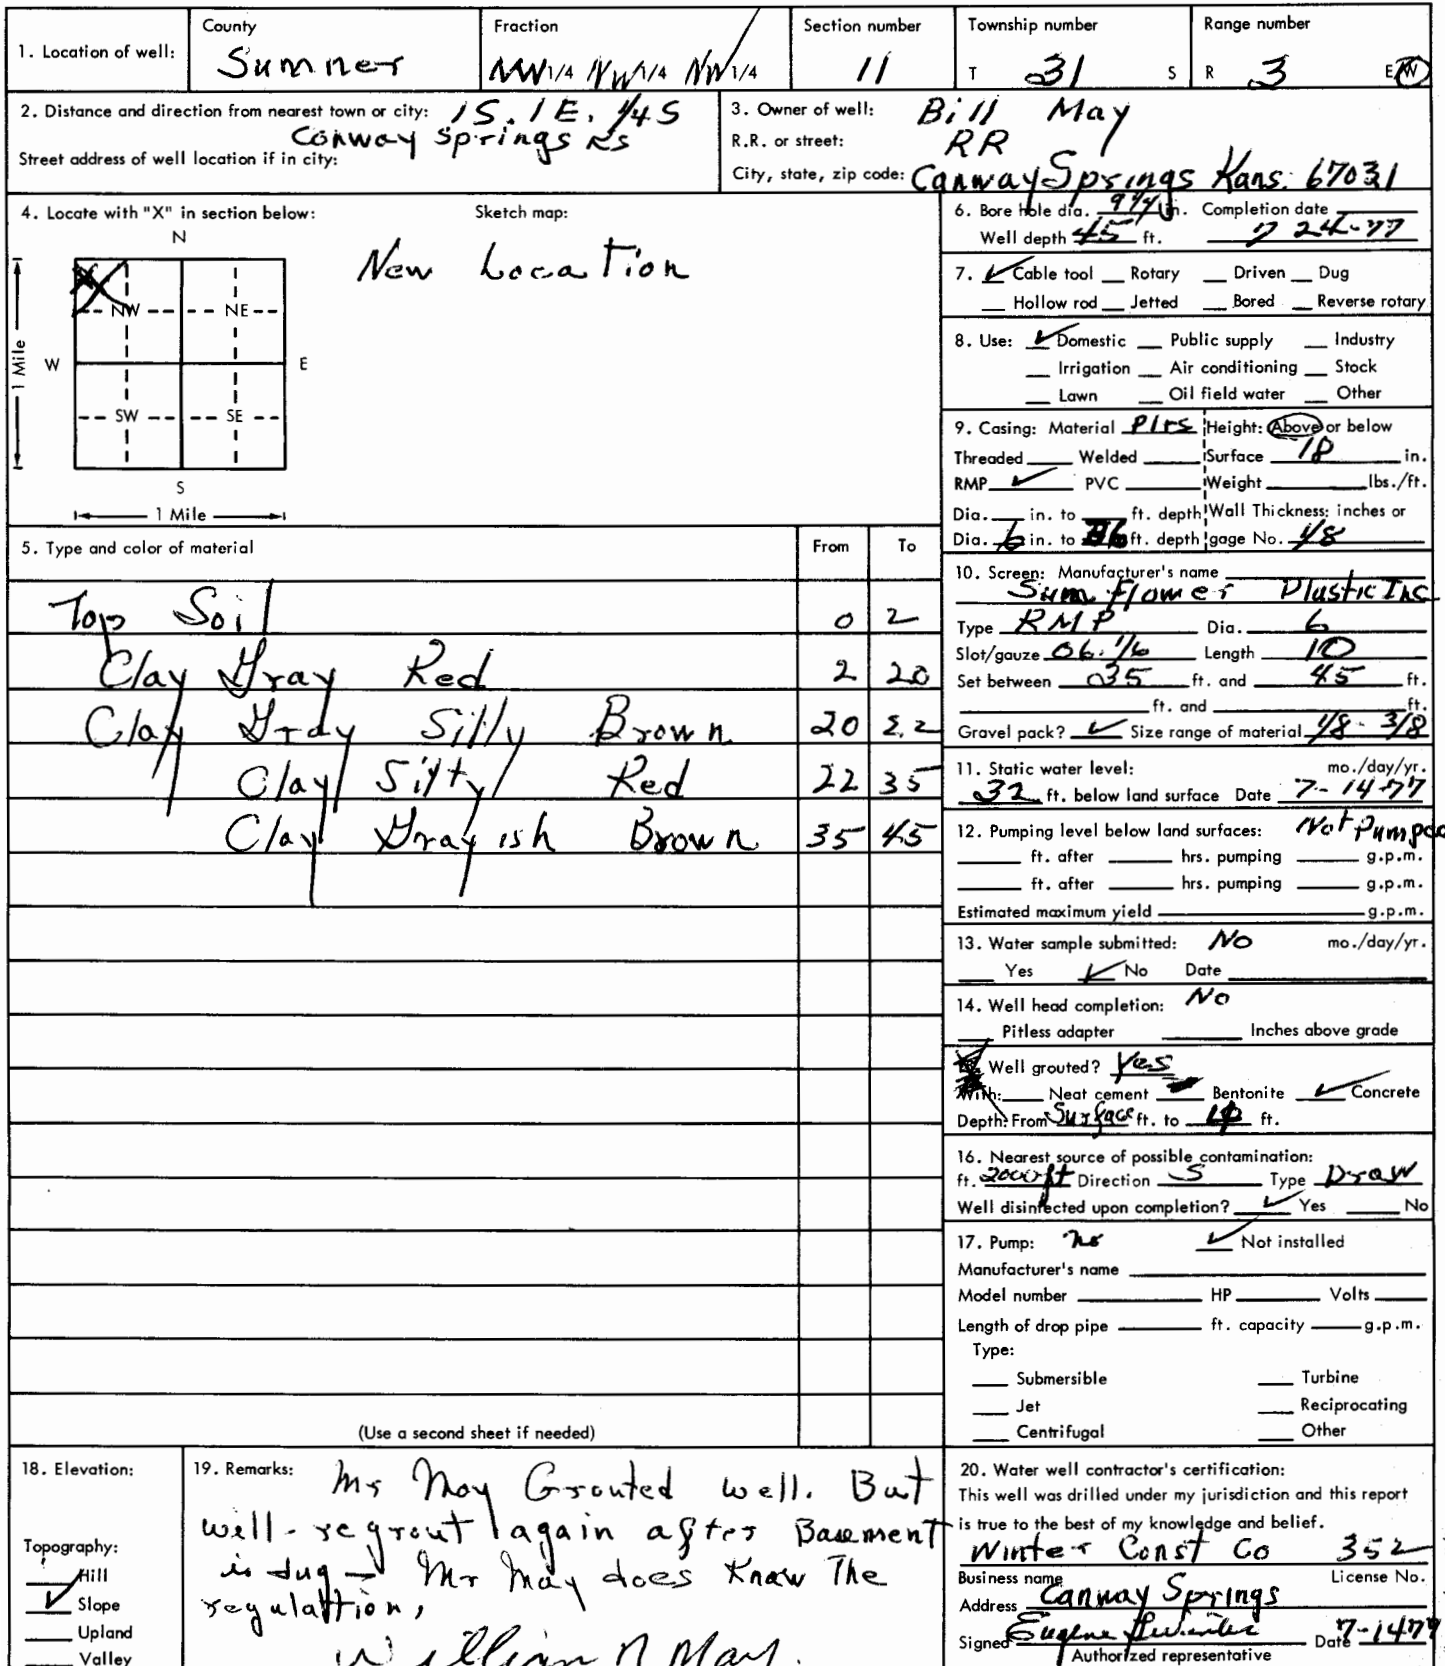 1. Location of well: County Sumner Fraction NW 1/4 NW 1/4 NW 1/4 Section number 11 Township number T 31 S Range number R 3 E W
2. Distance and direction from nearest town or city: 1S. 1E. 1/4 S
Conway Springs Ks
Street address of well location if in city:
3. Owner of well: Bill May
R.R. or street: RR
City, state, zip code: Conway Springs Kans. 67031
4. Locate with "X" in section below: Sketch map:
New Location
N
NW NE
W E
SW SE
S
1 Mile
1 Mile
6. Bore hole dia. 9 3/4 in. Completion date
Well depth 45 ft. 7 24-77
7. ✓ Cable tool __ Rotary __ Driven __ Dug
__ Hollow rod __ Jetted __ Bored __ Reverse rotary
8. Use: ✓ Domestic __ Public supply __ Industry
__ Irrigation __ Air conditioning __ Stock
__ Lawn __ Oil field water __ Other
9. Casing: Material Height: Above or below
Threaded __ Welded __ Surface 18 in.
RMP ✓ PVC __ Weight __ lbs./ft.
Dia. __ in. to __ ft. depth Wall Thickness: inches or
Dia. 6 in. to ft. depth gage No. 1/8
5. Type and color of material From To
Top Soil 0 2
Clay Gray Red 2 20
Clay Gray Silty Brown 20 22
Clay Silty Red 22 35
Clay Grayish Brown 35 45
(Use a second sheet if needed)
10. Screen: Manufacturer's name
Sunflower Plastic Inc
Type RMP Dia. 6
Slot/gauze 06. 1/16 Length 10
Set between 35 ft. and 45 ft.
__ ft. and __ ft.
Gravel pack? ✓ Size range of material 1/8 - 3/8
11. Static water level: mo./day/yr.
32 ft. below land surface Date 7-14-77
12. Pumping level below land surfaces: Not Pumped
__ ft. after __ hrs. pumping __ g.p.m.
__ ft. after __ hrs. pumping __ g.p.m.
Estimated maximum yield __ g.p.m.
13. Water sample submitted: No mo./day/yr.
__ Yes ✓ No Date __
14. Well head completion: No
__ Pitless adapter __ Inches above grade
Well grouted? Yes
With: __ Neat cement __ Bentonite ✓ Concrete
Depth: From Surface ft. to ft.
16. Nearest source of possible contamination:
ft. 2000 ft Direction S Type Draw
Well disinfected upon completion? ✓ Yes __ No
17. Pump: no ✓ Not installed
Manufacturer's name __
Model number __ HP __ Volts __
Length of drop pipe __ ft. capacity __ g.p.m.
Type:
__ Submersible __ Turbine
__ Jet __ Reciprocating
__ Centrifugal __ Other
18. Elevation:
Topography:
__ Hill
✓ Slope
__ Upland
__ Valley
19. Remarks: Mr May Grouted well. But
will - regrout again after Basement
is dug - Mr May does Know The
regulattion,
William N May.
20. Water well contractor's certification:
This well was drilled under my jurisdiction and this report
is true to the best of my knowledge and belief.
Winter Const Co 352
Business name License No.
Address Conway Springs
Signed Eugene Winter Date 7-1477
Authorized representative